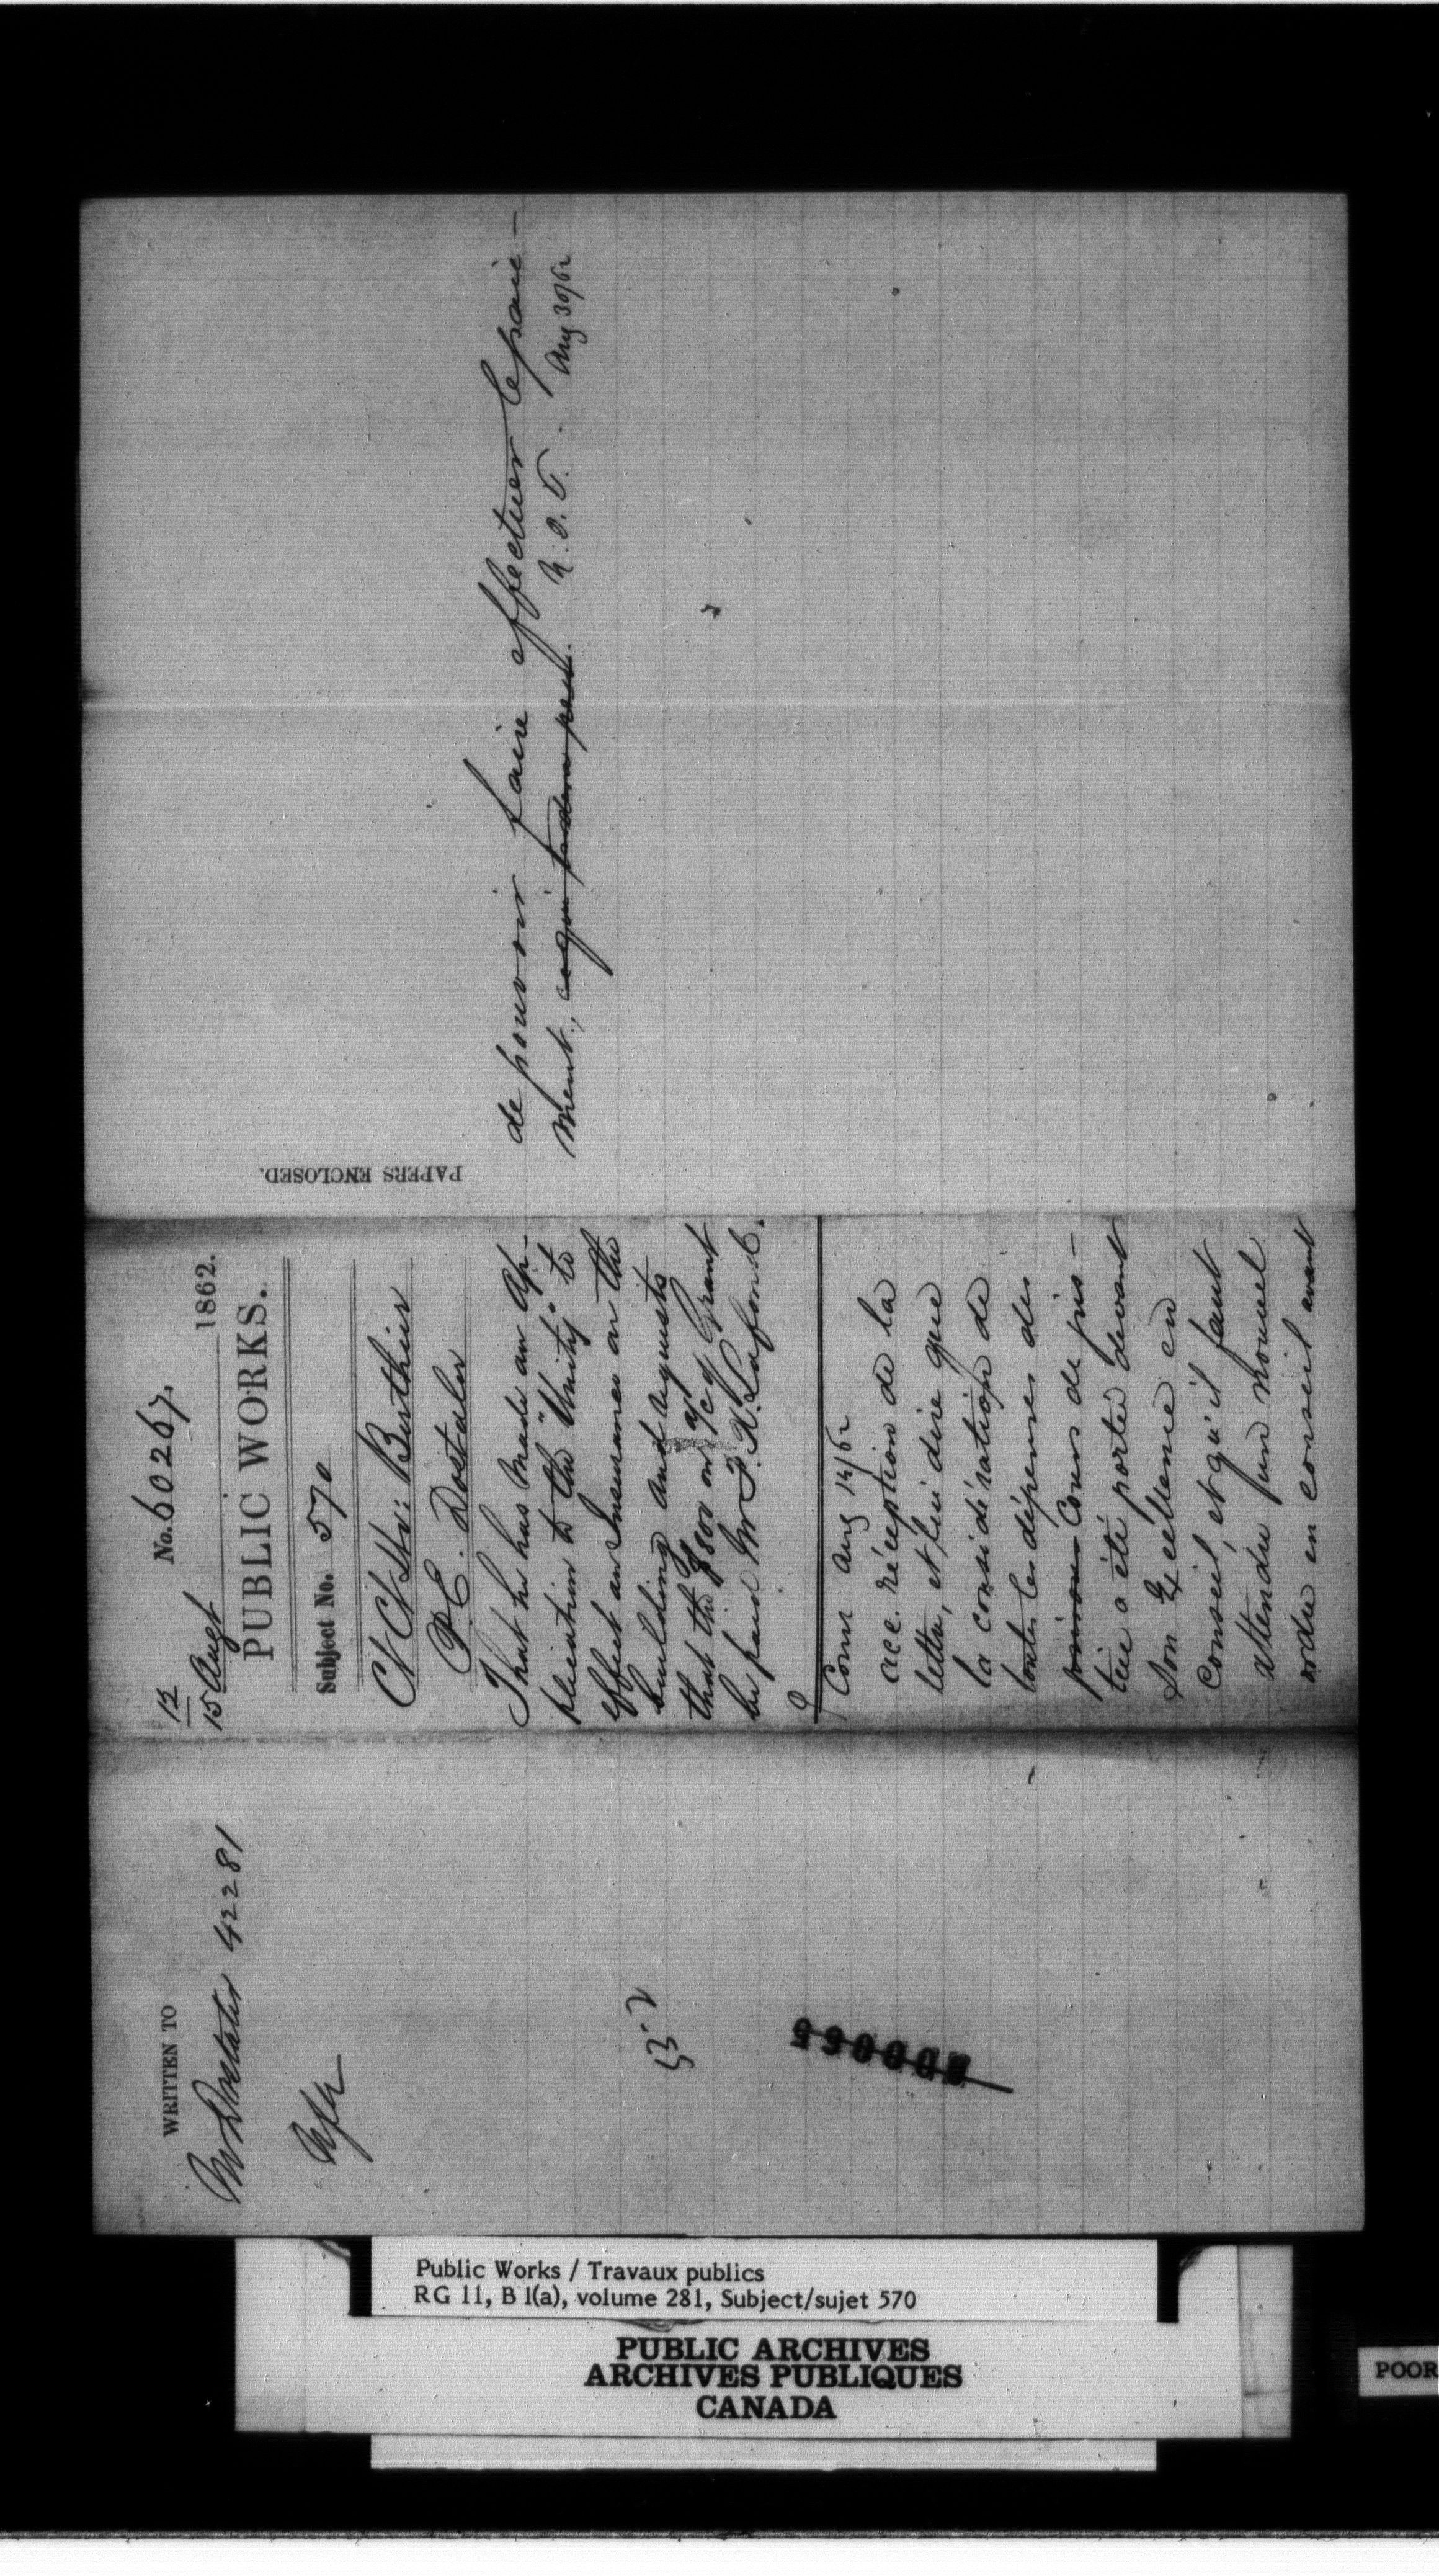 WRITTEN TO
Mr Dostaler 42281
12
15 Augt
No. 60267.
1862.
PUBLIC WORKS.
Subject No. 570
Ct Ho: Berthier
P.E. Dostaler
That he has made an Ap-
plication to the "Unity" to
effect an Insurance on the
building and requests
that the $800 on a/c of Grant
be paid Mr F.X. Lafond.
Com Aug 14/62
acc. réception de la
lettre, et lui dire que
la considération de
toutes les dépenses des
Cours de jus-
tice a été portée devant
Son Excellence en
Conseil, et qu'il faut
attendre un nouvel
ordre en conseil avant
PAPERS ENCLOSED.
de pouvoir faire effectuer le paie-
ment,
Aug 30/62
Public Works / Travaux publics
RG 11, B 1(a), volume 281, Subject/sujet 570
PUBLIC ARCHIVES
ARCHIVES PUBLIQUES
CANADA
POOR